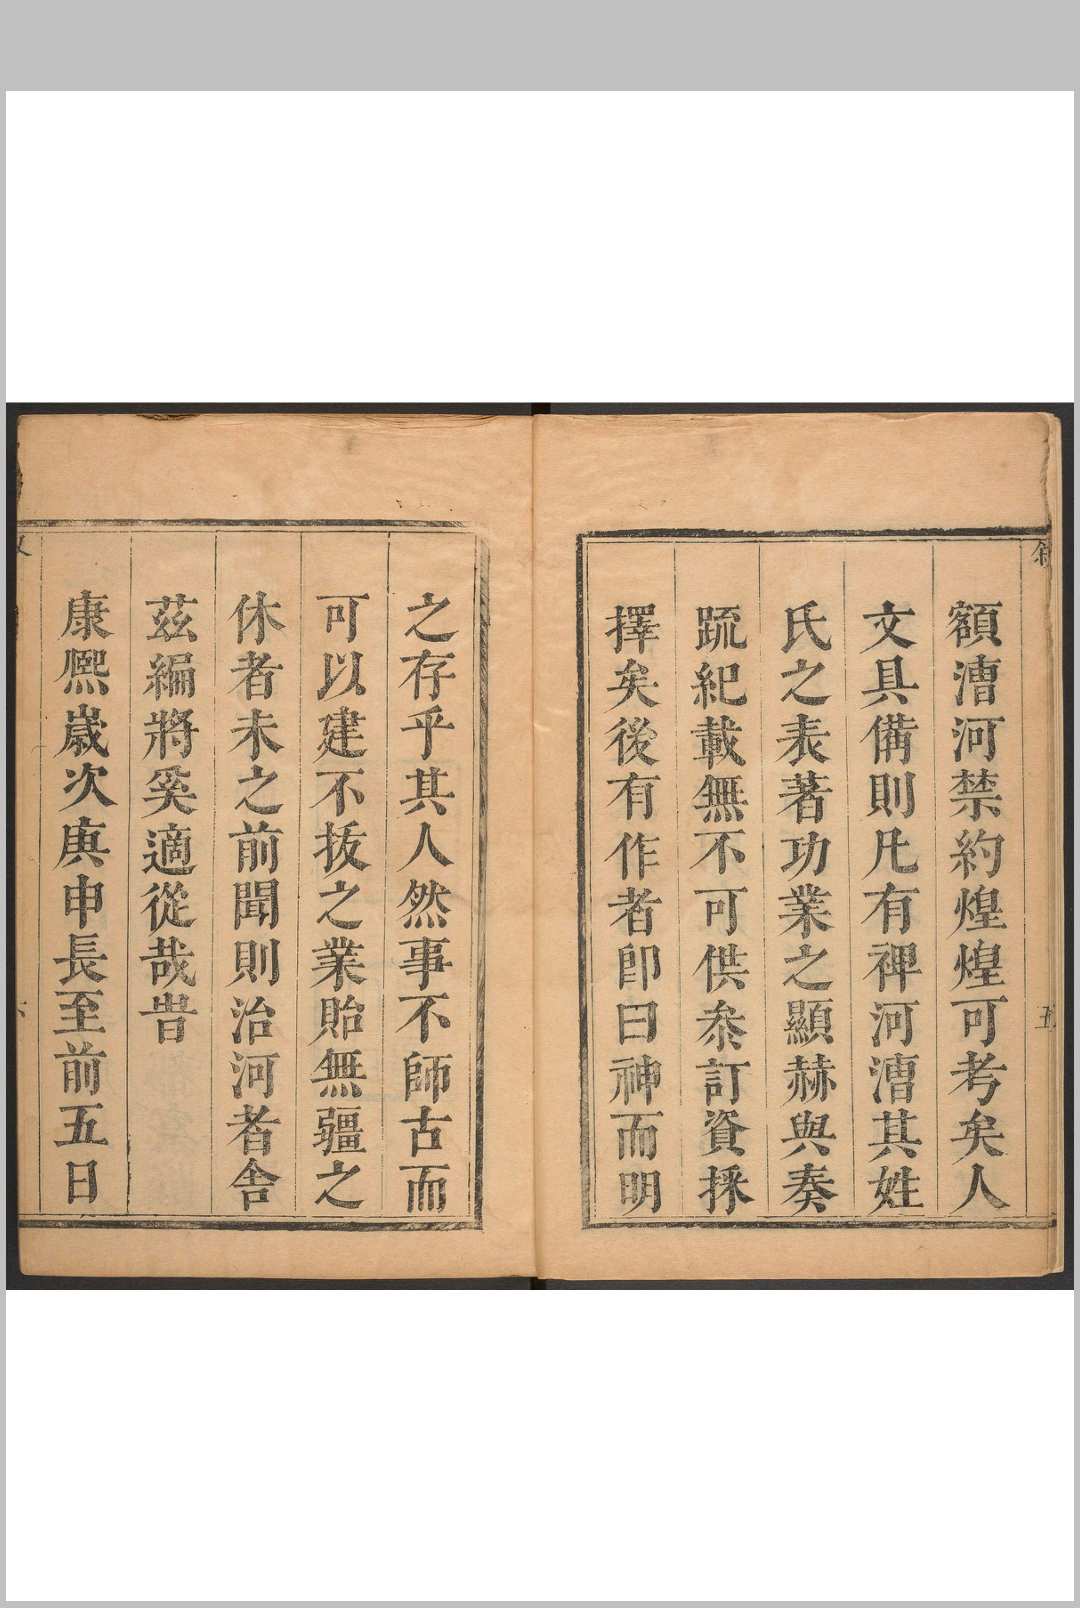 叙
五
額漕河禁約煌煌可考矣人
文具備則凡有裨河漕其姓
氏之表著功業之顯赫與奏
疏紀載無不可供叅訂資採
擇矣後有作者卽曰神而明
之存乎其人然事不師古而
可以建不拔之業貽無疆之
休者未之前聞則治河者舍
茲編將奚適從哉旹
康熈歲次庚申長至前五日